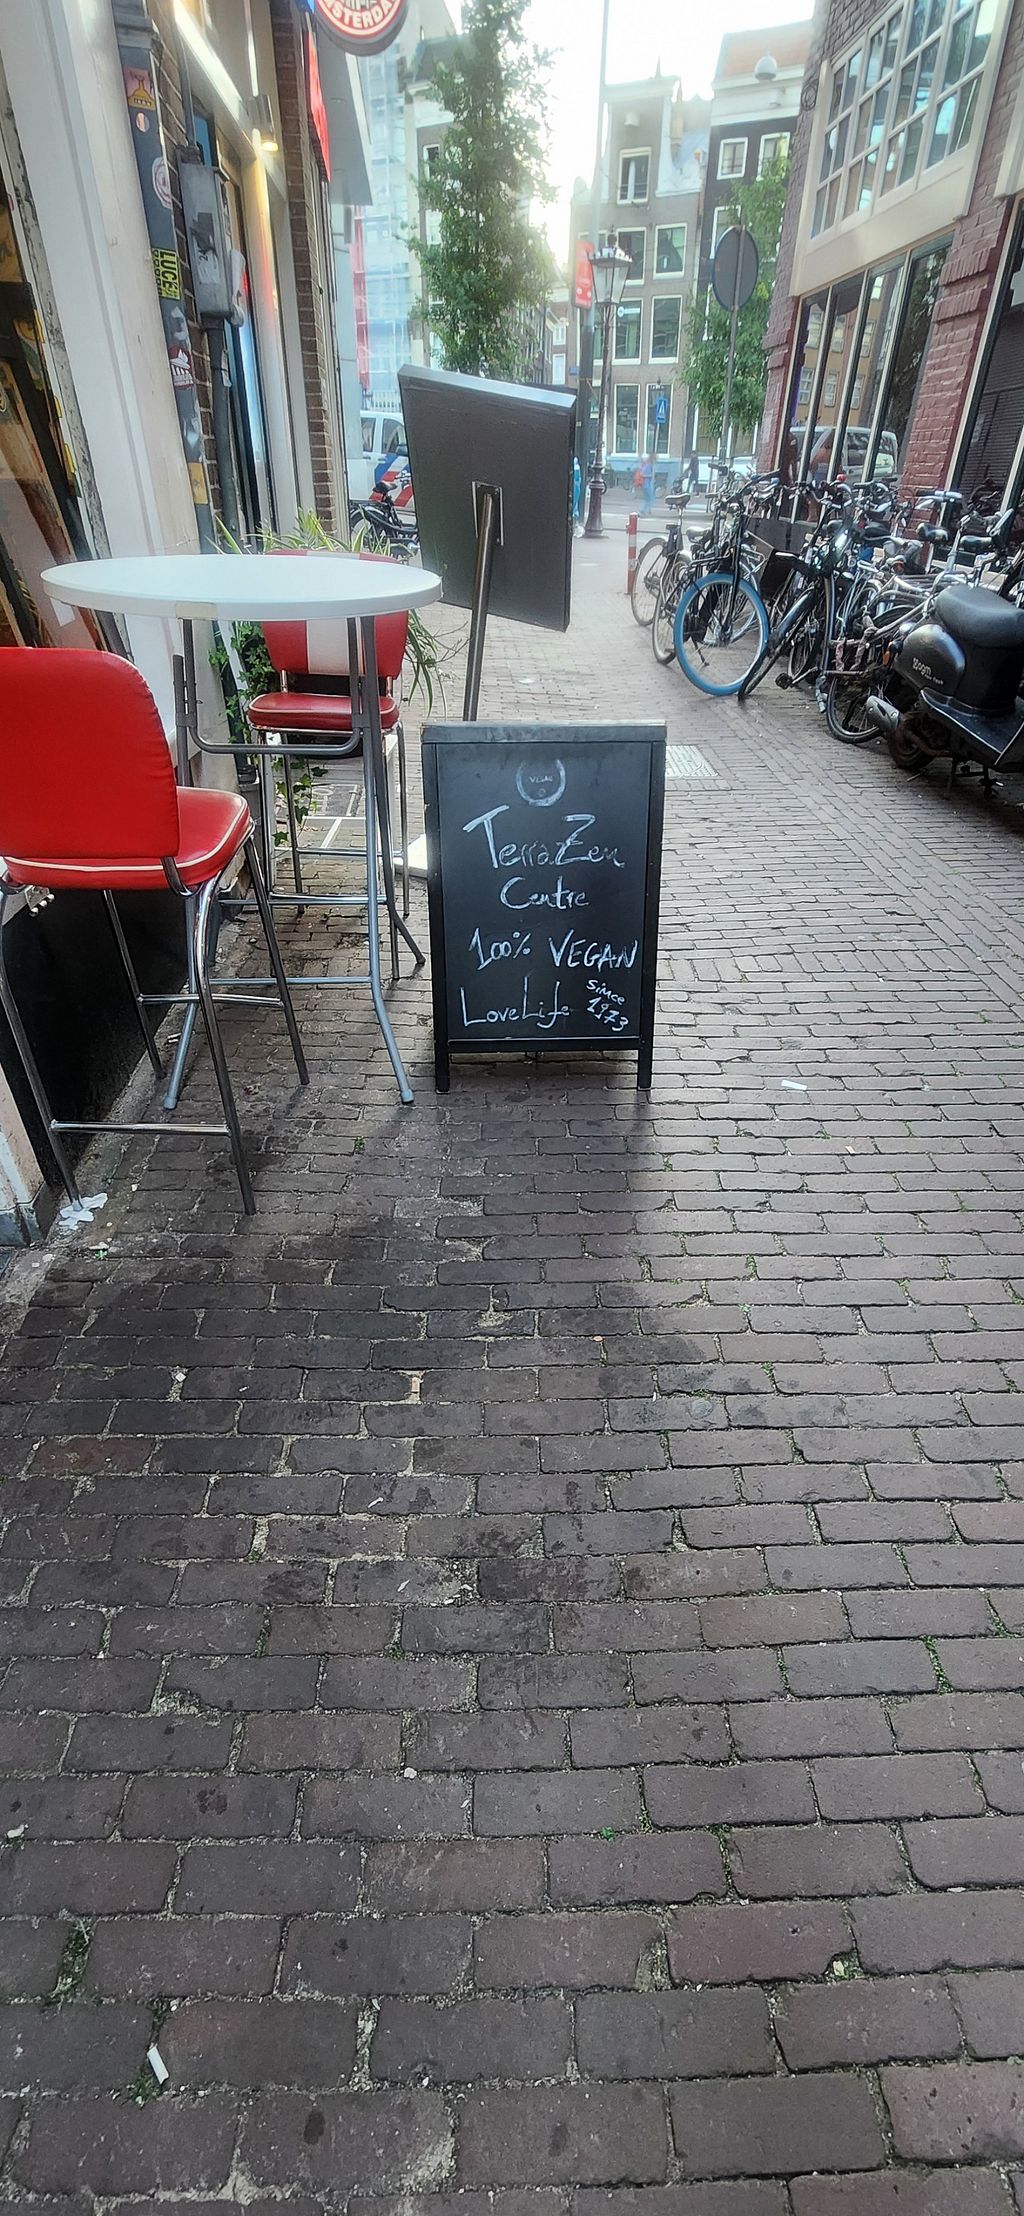 AMSTERDAM
LUCE
VEGAN
TerraZen
Centre
100% VEGAN
LoveLife
Since
1973